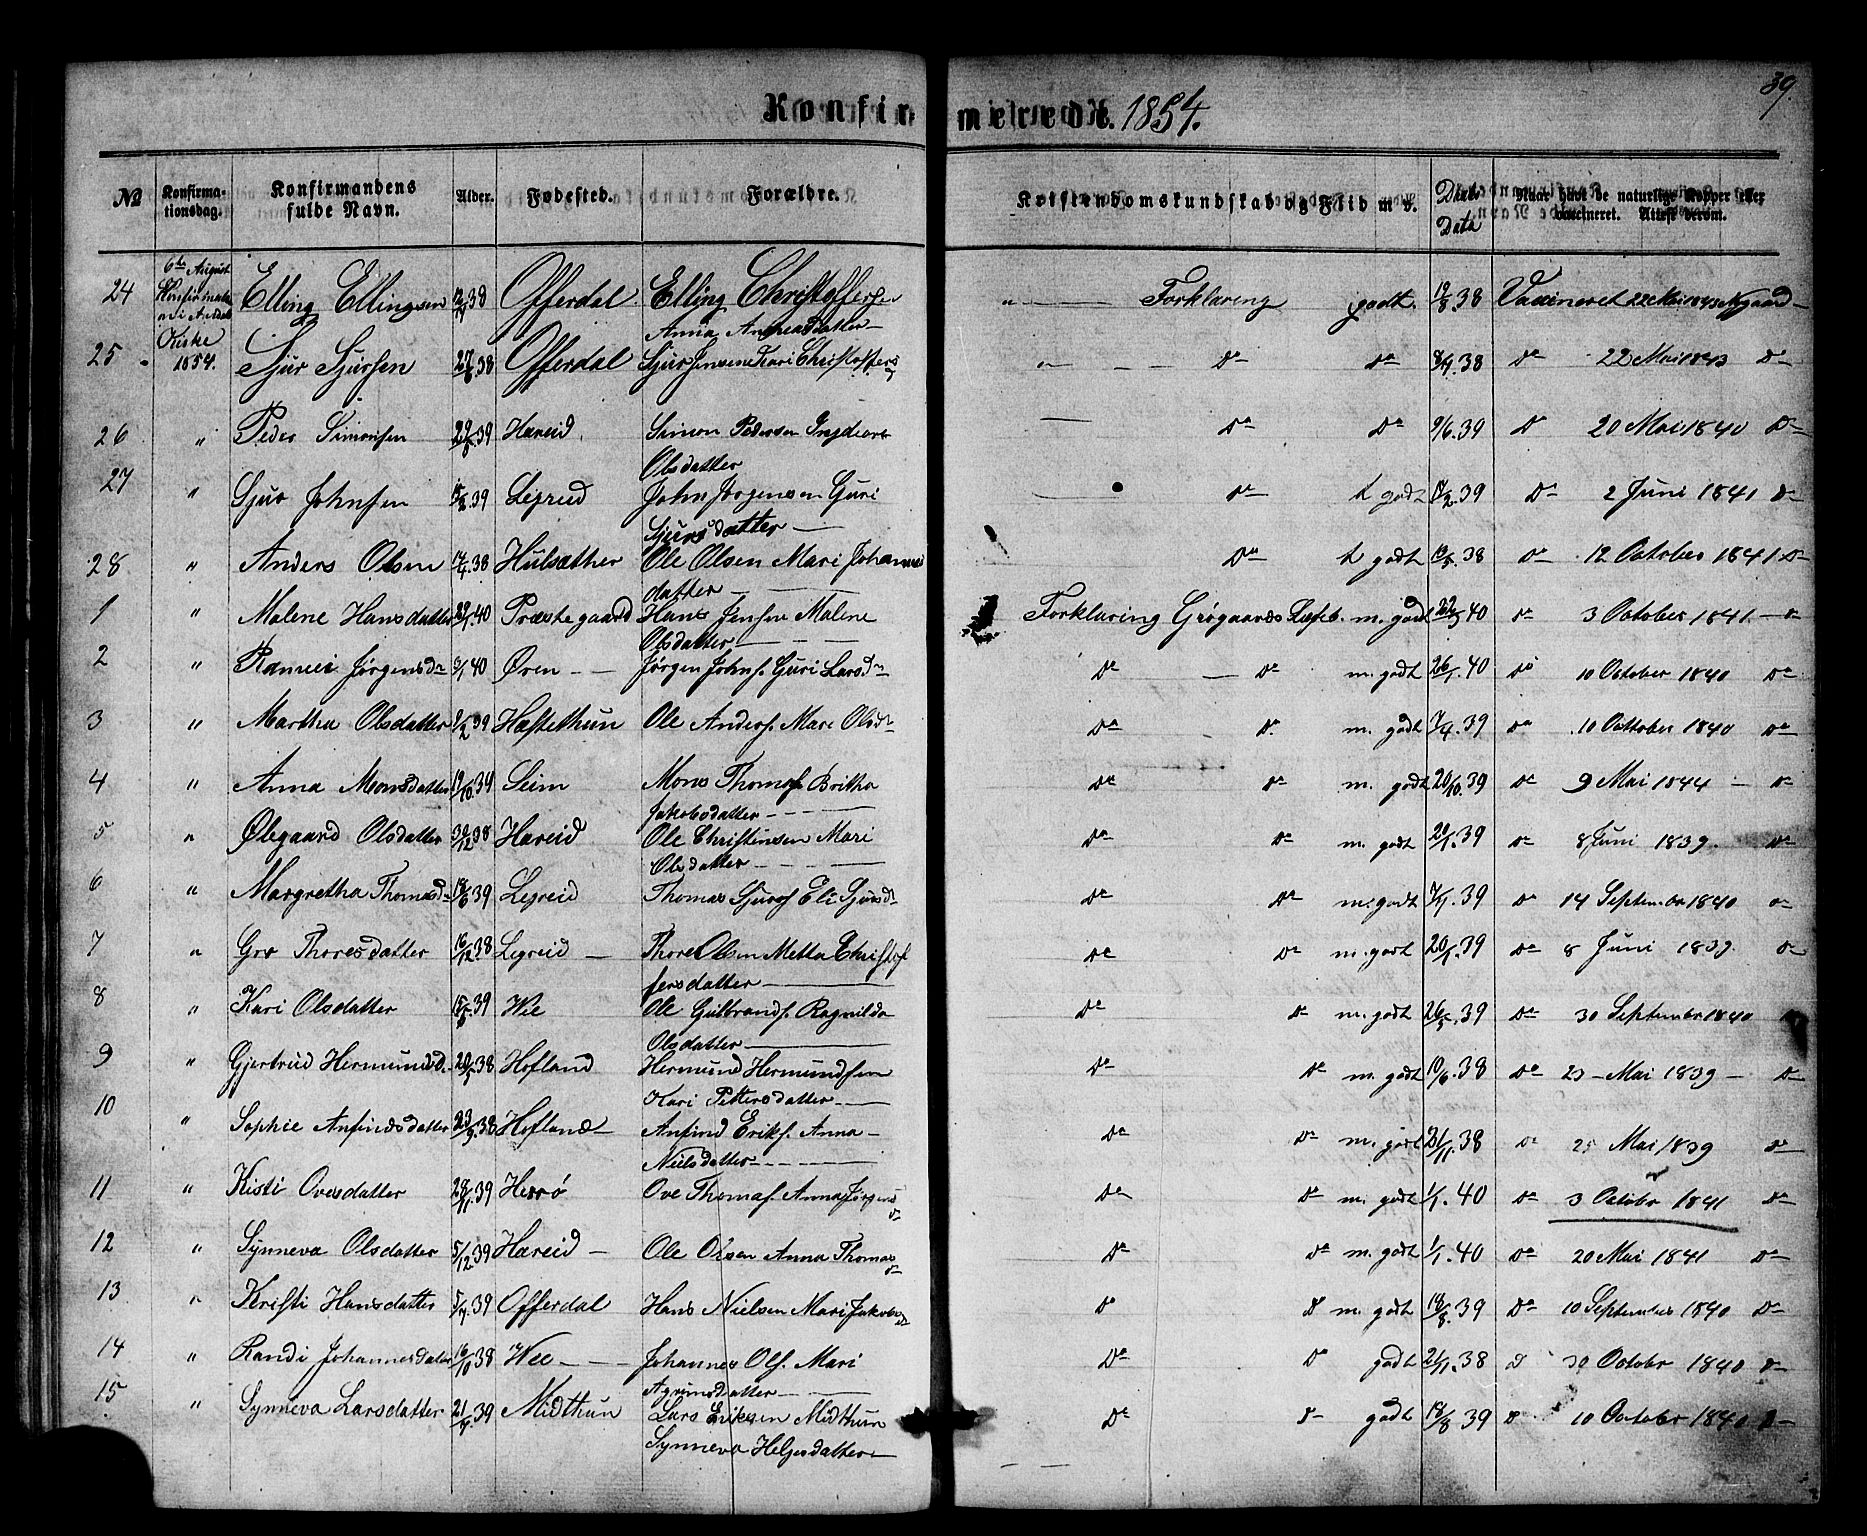 39.
Konfirmerede. 1854.
No Konfirmationsdag. Konfirmandens fulde Navn. Alder. Fødested. Forældre. Kristendomskundskab og Flid m. v. Daabs Data Naar havt de naturlige Kopper eller vaccineret. Attest derom.
6te August
24 Elling Ellingsen 38 Offerdal Elling Christoffersen " Forklaring godt. 19/8.38 Vaccineret 22 Mai 1843 Nygaard
Anna Andreasdatter
Kirke
25 1854. Sjur Sjursen 38 Offerdal Sjur Jensen Kari Christoffers Do Do 38 Do 22 Mai 1843 Do
26 " Peder Simonsen 39 Hareid Simon Pedersen Ingeborg Do Do 9/6.39 Do 20 Mai 1840 Do
Olsdatter
27 " Sjur Johnsen 39 Legreid John Jørgensen Guri Do t godt 39 Do 2 Juni 1841 Do
Sjursdatter
28 " Anders Olsen 38 Hulsæther Ole Olsen Mari Johannes Do t godt 38 Do 12 October 1841 Do
datter
1 " Malene Hansdatter 40 Præstegaard Hans Jensen Malene Forklaring Grøgaards Læseb. m. godt 40 Do 3 October 1841 Do
Olsdatter
2 " Jørgensdr 40 Øren Jørgen Johns. Guri Larsdr Do Do m. godt 26/1.40 Do 10 October 1840 Do
3 " Martha Olsdatter 2/2 39 Hæftethun Ole Anders. Mari Olsdr Do D. m. godt 7/4.39 Do 10 October 1840 Do
4 " Anna Monsdatter 19/10.39 Seim Mons Thomas. Britha Do Do m. godt 20/10.39 Do 9 Mai 1844 Do
Jakobsdatter
5 " Ølegaard Olsdatter 30/12 38 Hareid Ole Christensen Mari Do Do m. godt 20/1.39 Do 8 Juni 1839. Do
Olsdatter
6 " Margretha Thomasd 18/6 39 Legreid Thomas Sjurs. Eli Sjursdr Do Do m. godt 39 Do 14 September 1840 Do
7 " Gro Thoresdatter 16/12.38 Legreid Thore Olsen Metta Christof Do Do m. godt 20/1.39 Do 8 Juni 1839. Do
fersdatter
8 " Kari Olsdatter 39 Wee Ole Gulbrands. Ragnilda Do D m. godt 26/5.39 Do 30 September 1840 Do
Olsdatter
9 " Gjertrud Hermundsd. 38 Hofland Hermund Hermundsen Do Do m. godt 10/6.38 Do 23 Mai 1839 Do
Kari Pettersdatter
10 " Sophie Anfindsdatter 23/9.38 Hofland Anfind Eriks. Anna Do Do m. godt 21/11.38 Do 25 Mai 1839 Do
Nielsdatter
11 " Kisti Ovesdatter 28/11.39 Herrø Ove Thomas. Anna Jørgens Do Do m. godt 1/1.40 Do 3 Octobr 1841 Do
dr
12 " Synneva Olsdatter 5/12.39 Hareid Ole Olsen Anna Thomas Do Do m. godt 1/1.40 Do 20 Mai 1841 Do
dr
13 " Kristi Hansdatter 39 Offerdal Hans Nielsen Mari Jakobs D D m. godt 18/8.39 Do 10 September 1840 Do
14 " Randi Johannesdatter 16/10 38 Wee Johannes Ols. Mari Do Do godt 38 D 30 Octobr 1840 Do
datter
15 " Synneva Larsdatter 39 Midthun Lars Eriksen Midthun Do D godt 18/8 39 D 10 Octobr 1840 D
Synneva Helgesdatter